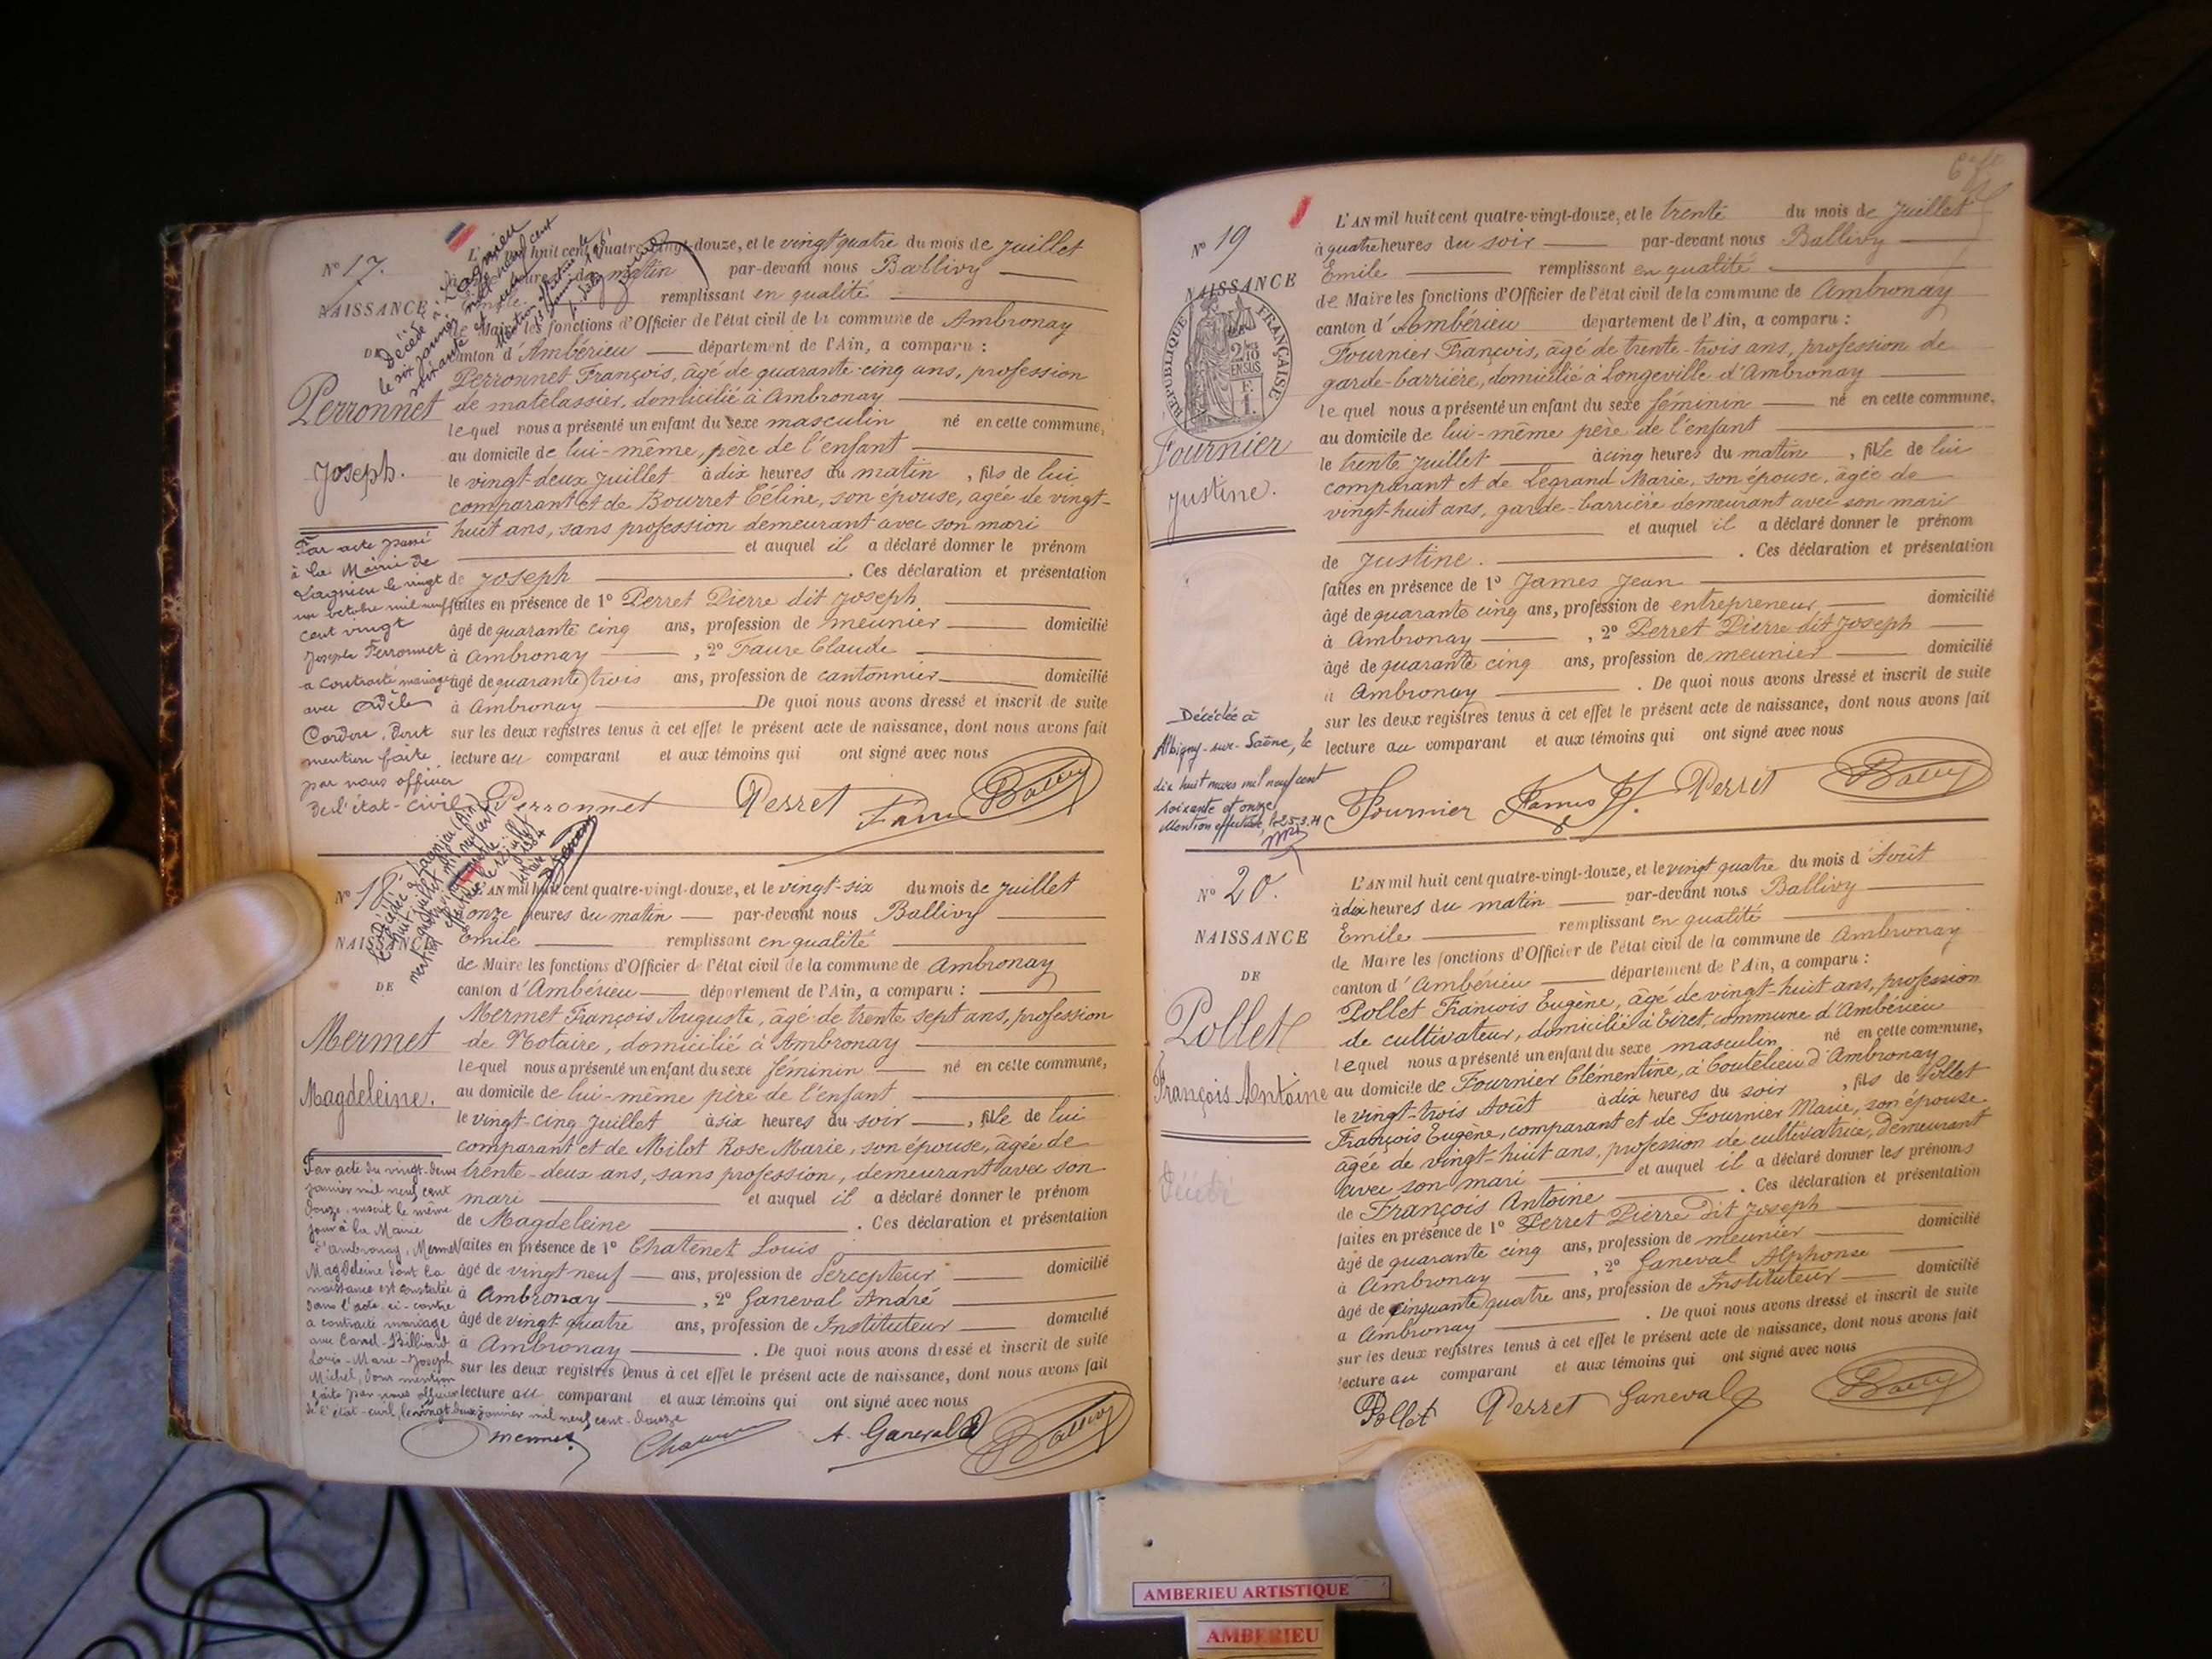 Nº 17.
NAISSANCE
DE
Perronnet
Joseph.
Décédé à Lagnieu
le six janvier mil neuf cent
soixante et
L'AN mil huit cent quatre-vingt-douze, et le vingt quatre du mois de Juillet
heures du matin par-devant nous Ballivy
remplissant en qualité
de Maire les fonctions d'Officier de l'état civil de la commune de Ambronay
canton d'Ambérieu département de l'Ain, a comparu :
Perronnet François, âgé de quarante-cinq ans, profession
de matelassier, domicilié à Ambronay
lequel nous a présenté un enfant du sexe masculin né en cette commune,
au domicile de lui-même, père de l'enfant
le vingt-deux Juillet à dix heures du matin, fils de lui
comparant et de Bourret Céline, son épouse, âgée de vingt-
huit ans, sans profession demeurant avec son mari
et auquel il a déclaré donner le prénom
de Joseph. Ces déclaration et présentation
faites en présence de 1º Perret Pierre dit Joseph
âgé de quarante cinq ans, profession de meunier domicilié
à Ambronay, 2º Faure Claude
âgé de quarante trois ans, profession de cantonnier domicilié
à Ambronay De quoi nous avons dressé et inscrit de suite
sur les deux registres tenus à cet effet le présent acte de naissance, dont nous avons fait
lecture au comparant et aux témoins qui ont signé avec nous
Perronnet Perret Faure Ballivy
Par acte passé
à la Mairie de
Lagnieu le vingt
un octobre mil neuf
cent vingt
Joseph Perronnet
a contracté mariage
avec Adèle
Cordou, dont
mention faite
par nous officier
de l'état-civil
Nº 18.
NAISSANCE
DE
Mermet
Magdeleine.
Décédée à Lagnieu (Ain)
le huit juillet mil neuf cent
L'AN mil huit cent quatre-vingt-douze, et le vingt-six du mois de Juillet
à onze heures du matin par-devant nous Ballivy
Emile remplissant en qualité
de Maire les fonctions d'Officier de l'état civil de la commune de Ambronay
canton d'Ambérieu département de l'Ain, a comparu :
Mermet François Auguste, âgé de trente sept ans, profession
de Notaire, domicilié à Ambronay
lequel nous a présenté un enfant du sexe féminin né en cette commune,
au domicile de lui-même père de l'enfant
le vingt-cinq Juillet à six heures du soir, fille de lui
comparant et de Milot Rose Marie, son épouse, âgée de
trente-deux ans, sans profession, demeurant avec son
mari et auquel il a déclaré donner le prénom
de Magdeleine. Ces déclaration et présentation
faites en présence de 1º Chatenet Louis
âgé de vingt neuf ans, profession de Percepteur domicilié
à Ambronay, 2º Ganeval André
âgé de vingt-quatre ans, profession de Instituteur domicilié
à Ambronay. De quoi nous avons dressé et inscrit de suite
sur les deux registres tenus à cet effet le présent acte de naissance, dont nous avons fait
lecture au comparant et aux témoins qui ont signé avec nous
Par acte du vingt-deux
janvier mil neuf cent
douze, inscrit le même
jour à la Mairie
d'Ambronay, Mermet
Magdeleine dont la
naissance est constatée
dans l'acte ci-contre
a contracté mariage
avec Billiard
Louis-Marie-Joseph
Michel, dont mention
faite par nous officier
de l'état-civil, le vingt deux janvier mil neuf cent-douze
Mermet A. Ganeval Ballivy
Nº 19
NAISSANCE
RÉPUBLIQUE FRANÇAISE
Fournier
Justine.
L'AN mil huit cent quatre-vingt-douze, et le trente du mois de Juillet
à quatre heures du soir par-devant nous Ballivy
Emile remplissant en qualité
de Maire les fonctions d'Officier de l'état civil de la commune de Ambronay
canton d'Ambérieu département de l'Ain, a comparu :
Fournier François, âgé de trente-trois ans, profession de
garde-barrière, domicilié à Longeville d'Ambronay
lequel nous a présenté un enfant du sexe féminin né en cette commune,
au domicile de lui-même père de l'enfant
le trente Juillet à cinq heures du matin, fille de lui
comparant et de Legrand Marie, son épouse, âgée de
vingt-huit ans, garde-barrière demeurant avec son mari
et auquel il a déclaré donner le prénom
de Justine. Ces déclaration et présentation
faites en présence de 1º James Jean
âgé de quarante cinq ans, profession de entrepreneur domicilié
à Ambronay, 2º Perret Pierre dit Joseph
âgé de quarante cinq ans, profession de meunier domicilié
à Ambronay. De quoi nous avons dressé et inscrit de suite
sur les deux registres tenus à cet effet le présent acte de naissance, dont nous avons fait
lecture au comparant et aux témoins qui ont signé avec nous
Fournier James Jⁿ. Perret Ballivy
Décédée à
Albigny-sur-Saône, le
dix huit mars mil neuf cent
soixante et onze
Mention effectuée, le 25.3.71
Nº 20.
NAISSANCE
DE
Pollet
François Antoine
Décédé
L'AN mil huit cent quatre-vingt-douze, et le vingt quatre du mois d'Août
à dix heures du matin par-devant nous Ballivy
Emile remplissant en qualité
de Maire les fonctions d'Officier de l'état civil de la commune de Ambronay
canton d'Ambérieu département de l'Ain, a comparu :
Pollet François Eugène, âgé de vingt-huit ans, profession
de cultivateur, domicilié à Tiret, commune d'Ambérieu
lequel nous a présenté un enfant du sexe masculin né en cette commune,
au domicile de Fournier Clémentine, à Coutelieu d'Ambronay
le vingt-trois Août à dix heures du soir, fils de Pollet
François Eugène, comparant et de Fournier Marie, son épouse
âgée de vingt-huit ans, profession de cultivatrice, demeurant
avec son mari et auquel il a déclaré donner les prénoms
de François Antoine. Ces déclaration et présentation
faites en présence de 1º Perret Pierre dit Joseph
âgé de quarante cinq ans, profession de meunier domicilié
à Ambronay, 2º Ganeval Alphonse
âgé de cinquante quatre ans, profession de Instituteur domicilié
à Ambronay. De quoi nous avons dressé et inscrit de suite
sur les deux registres tenus à cet effet le présent acte de naissance, dont nous avons fait
lecture au comparant et aux témoins qui ont signé avec nous
Pollet Perret Ganeval Ballivy
AMBERIEU ARTISTIQUE
AMBERIEU